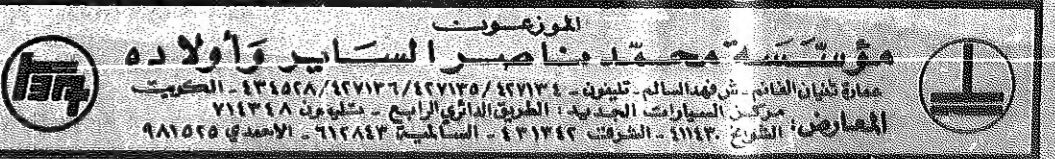 الموزعون
مؤسسَة محمّد ناصر السَاير وَأولاده
عمارة ثنيان الغانم - ش فهد السالم - تليفون - ٤٢٧١٣٤ / ٤٢٧١٣٥ / ٤٢٧١٣٦ / ٤٣٤٥٢٨ - الكويت
المعارض: مركز السيارات الجديد: الطريق الدائري الرابع - تليفون ٧١٤٣٤٨
الشويخ ٤١١٤٣٠ - الشرق ٤٣١٣٤٢ - السالمية ٦١٢٨٤٣ - الاحمدي ٩٨١٥٢٥